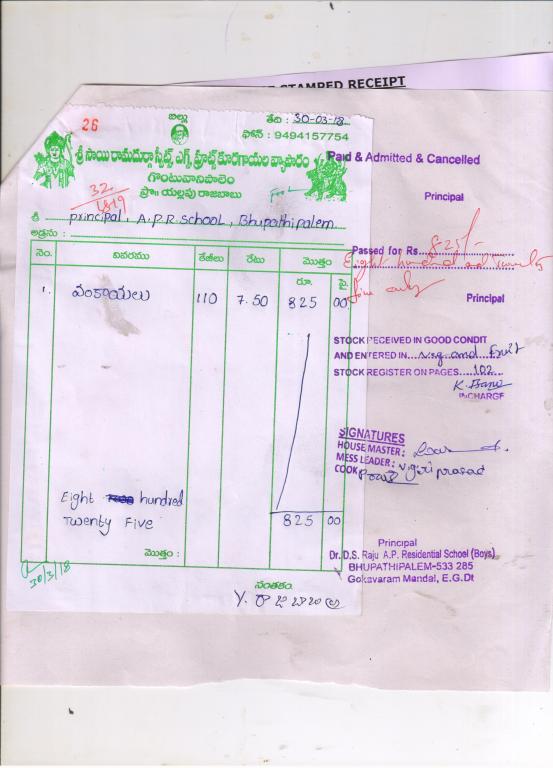 STAMPED RECEIPT
26
బిల్లు
తేది : 30-03-18
ఫోన్ : 9494157754
శ్రీ సాయి రామదుర్గా స్వీట్స్ ఎగ్స్ ఫ్రూట్స్ కూరగాయల వ్యాపారం
గొంటువానిపాలెం
ప్రొ॥ యల్లపు రాజబాబు
32
1819
శ్రీ Principal, A.P.R.SCHOOL, Bhupathipalem
అడ్రసు :
నెం. వివరము కేజీలు రేటు మొత్తం
రూ. పై.
1. వంకాయలు 110 7.50 825 00
Eight hundred
Twenty Five
825 00
మొత్తం :
30/3/18
సంతకం
Y. రాజబాబు
Paid & Admitted & Cancelled
Principal
Passed for Rs 825/-
Eight hundred and Twenty
Five only
Principal
STOCK RECEIVED IN GOOD CONDIT
AND ENTERED IN veg and fruit
STOCK REGISTER ON PAGES 102
INCHARGE
SIGNATURES
HOUSE MASTER:
MESS LEADER:
COOK V giri prasad
Principal
Dr. D.S. Raju A.P. Residential School (Boys)
BHUPATHIPALEM-533 285
Gokavaram Mandal, E.G.Dt